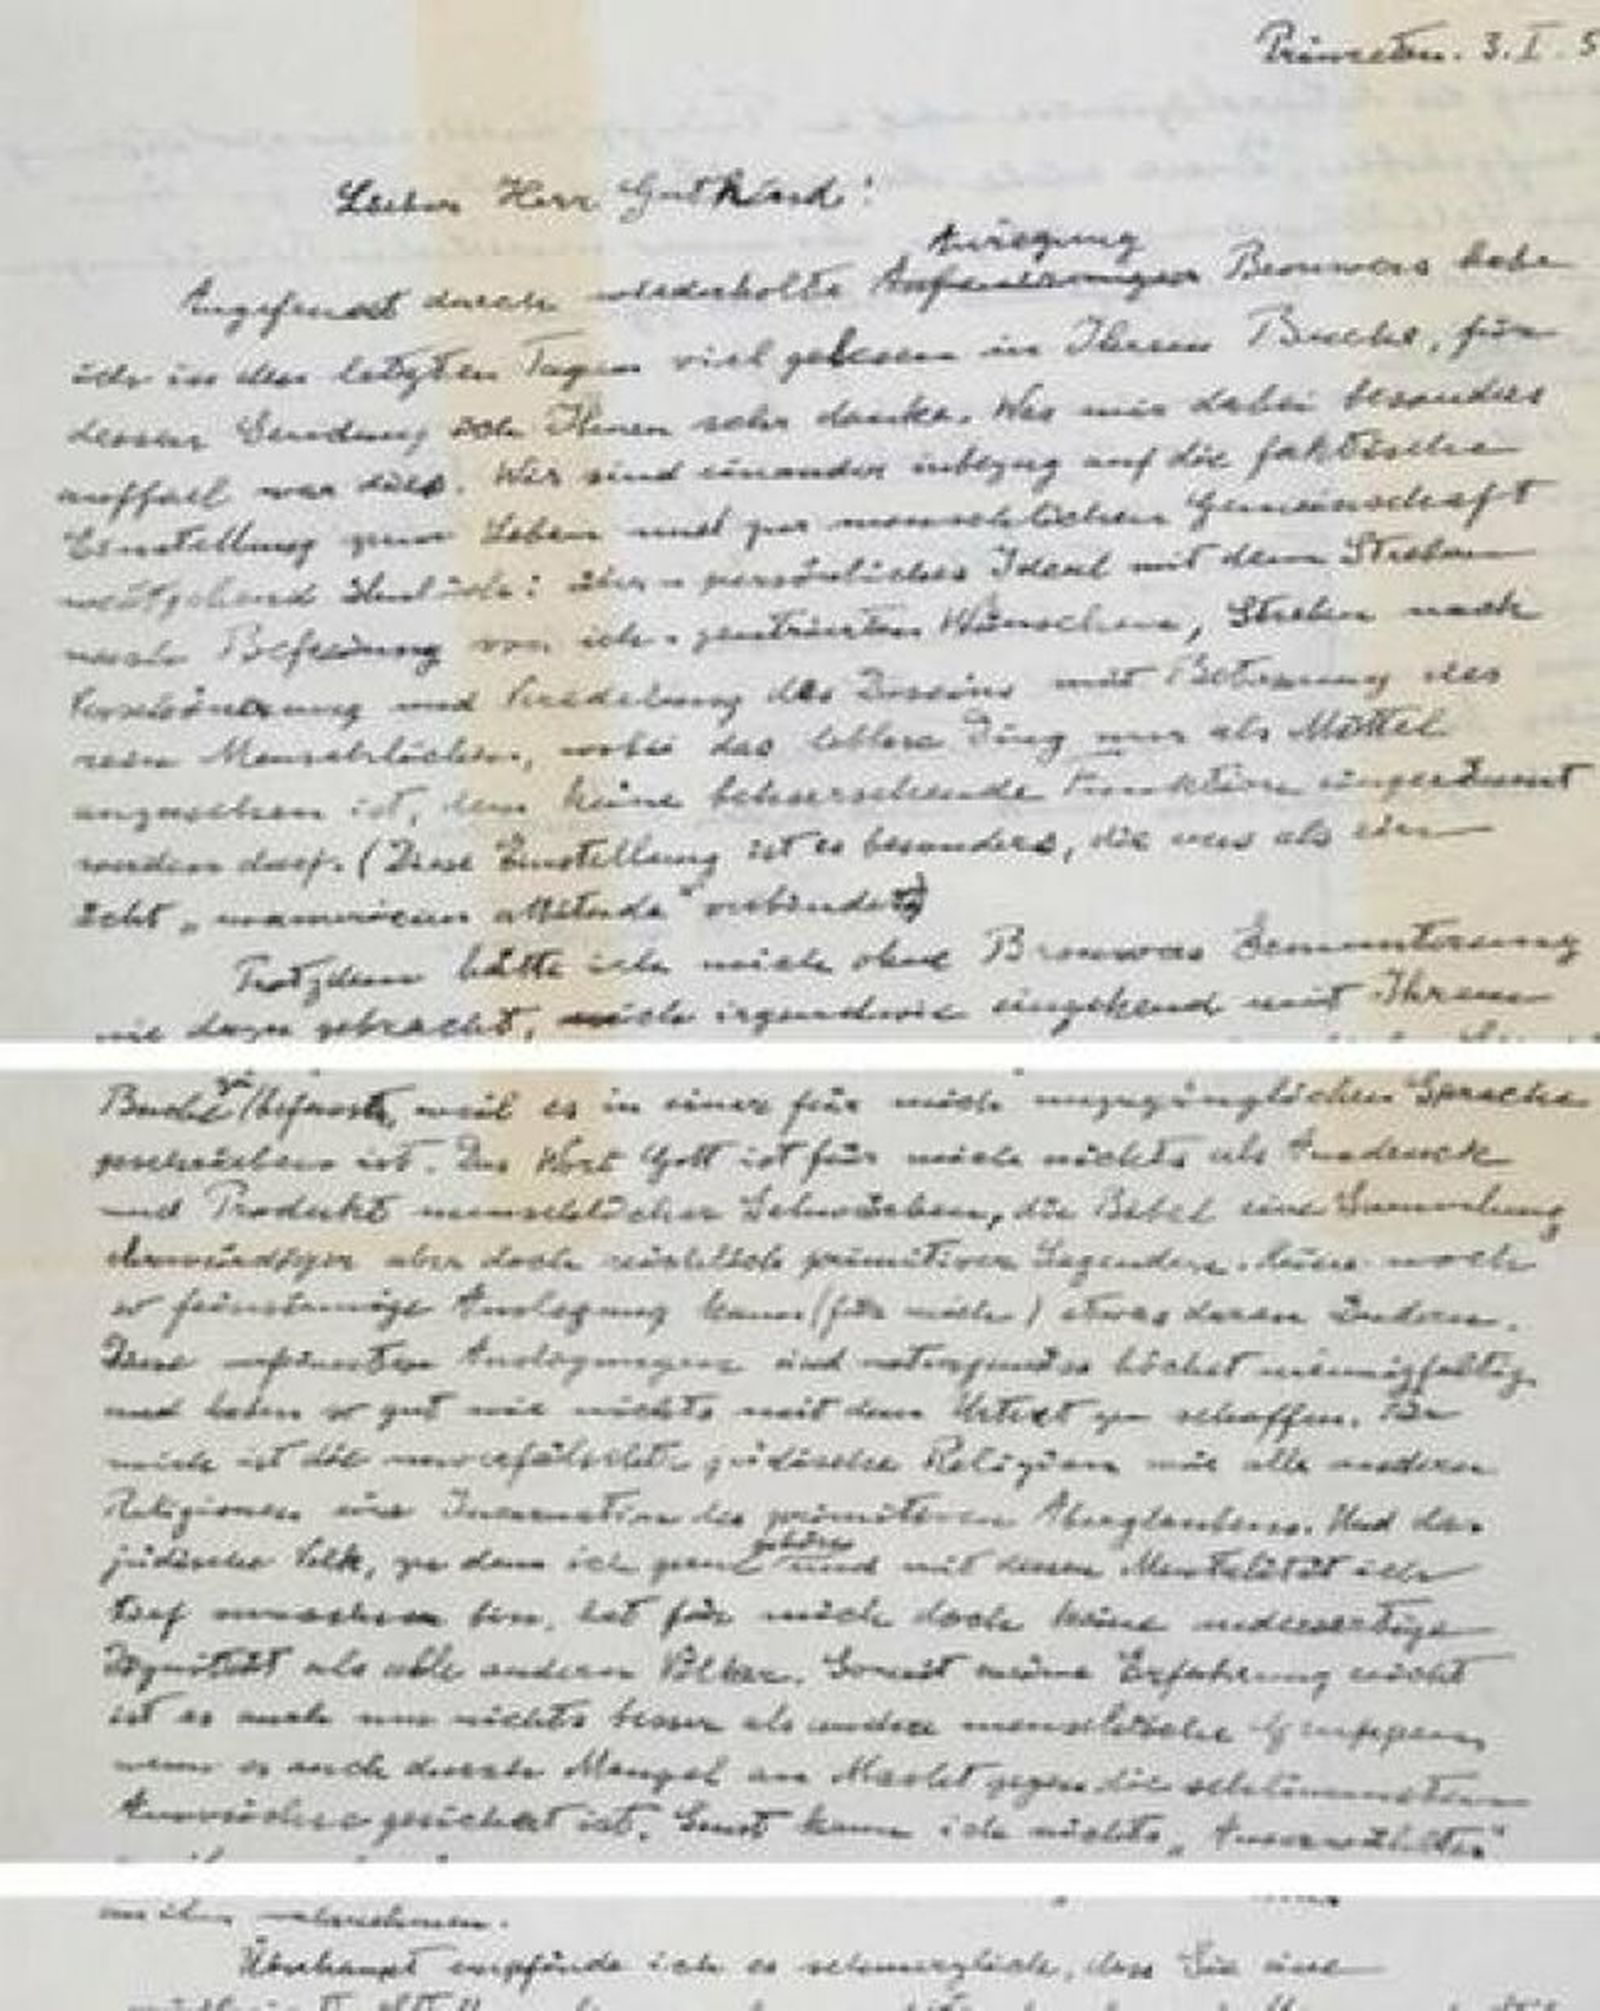 Princeton. 3. I. 5
Lieber Herr Gutkind!
Anregung
Angefeuert durch wiederholte Brouwers habe
ich in den letzten Tagen viel gelesen in Ihrem Buche, für
dessen Sendung ich Ihnen sehr danke. Was mir dabei besonders
auffiel war dies. Wir sind einander inbezug auf die faktische
Einstellung zum Leben und zur menschlichen Gemeinschaft
weitgehend ähnlich: über-persönliches Ideal mit dem Streben
nach Befreiung von ich-zentrierten Wünschen, Streben nach
Verschönerung und Veredelung des Daseins mit Betonung des
rein Menschlichen, wobei das leblose Ding nur als Mittel
anzusehen ist, dem keine beherrschende Funktion eingeräumt
werden darf. (Diese Einstellung ist es besonders, die uns als ein
ächt „unamerican attitude" verbindet)
Trotzdem hätte ich mich ohne Brouwers Ermunterung
nie dazu gebracht, mich irgendwie eingehend mit Ihrem
Buche zu befassen, weil es in einer für mich unzugänglichen Sprache
geschrieben ist. Das Wort Gott ist für mich nichts als Ausdruck
und Produkt menschlicher Schwächen, die Bibel eine Sammlung
ehrwürdiger aber doch reichlich primitiver Legenden. Keine noch
so feinsinnige Auslegung kann (für mich) etwas daran ändern.
Diese verfeinerten Auslegungen sind naturgemäss höchst mannigfaltig
und haben so gut wie nichts mit dem Urtext zu schaffen. Für
mich ist die unverfälschte jüdische Religion wie alle anderen
Religionen eine Incarnation des primitiven Aberglaubens. Und das
gehöre
jüdische Volk, zu dem ich gern und mit dessen Mentalität ich
tief verwachsen bin, hat für mich doch keine andersartige
Dignität als alle anderen Völker. Soweit meine Erfahrung reicht
ist es auch um nichts besser als andere menschliche Gruppen
wenn es auch durch Mangel an Macht gegen die schlimmsten
Auswüchse gesichert ist. Sonst kann ich nichts „Auserwähltes"
an ihm wahrnehmen.
Überhaupt empfinde ich es schmerzlich, dass Sie eine